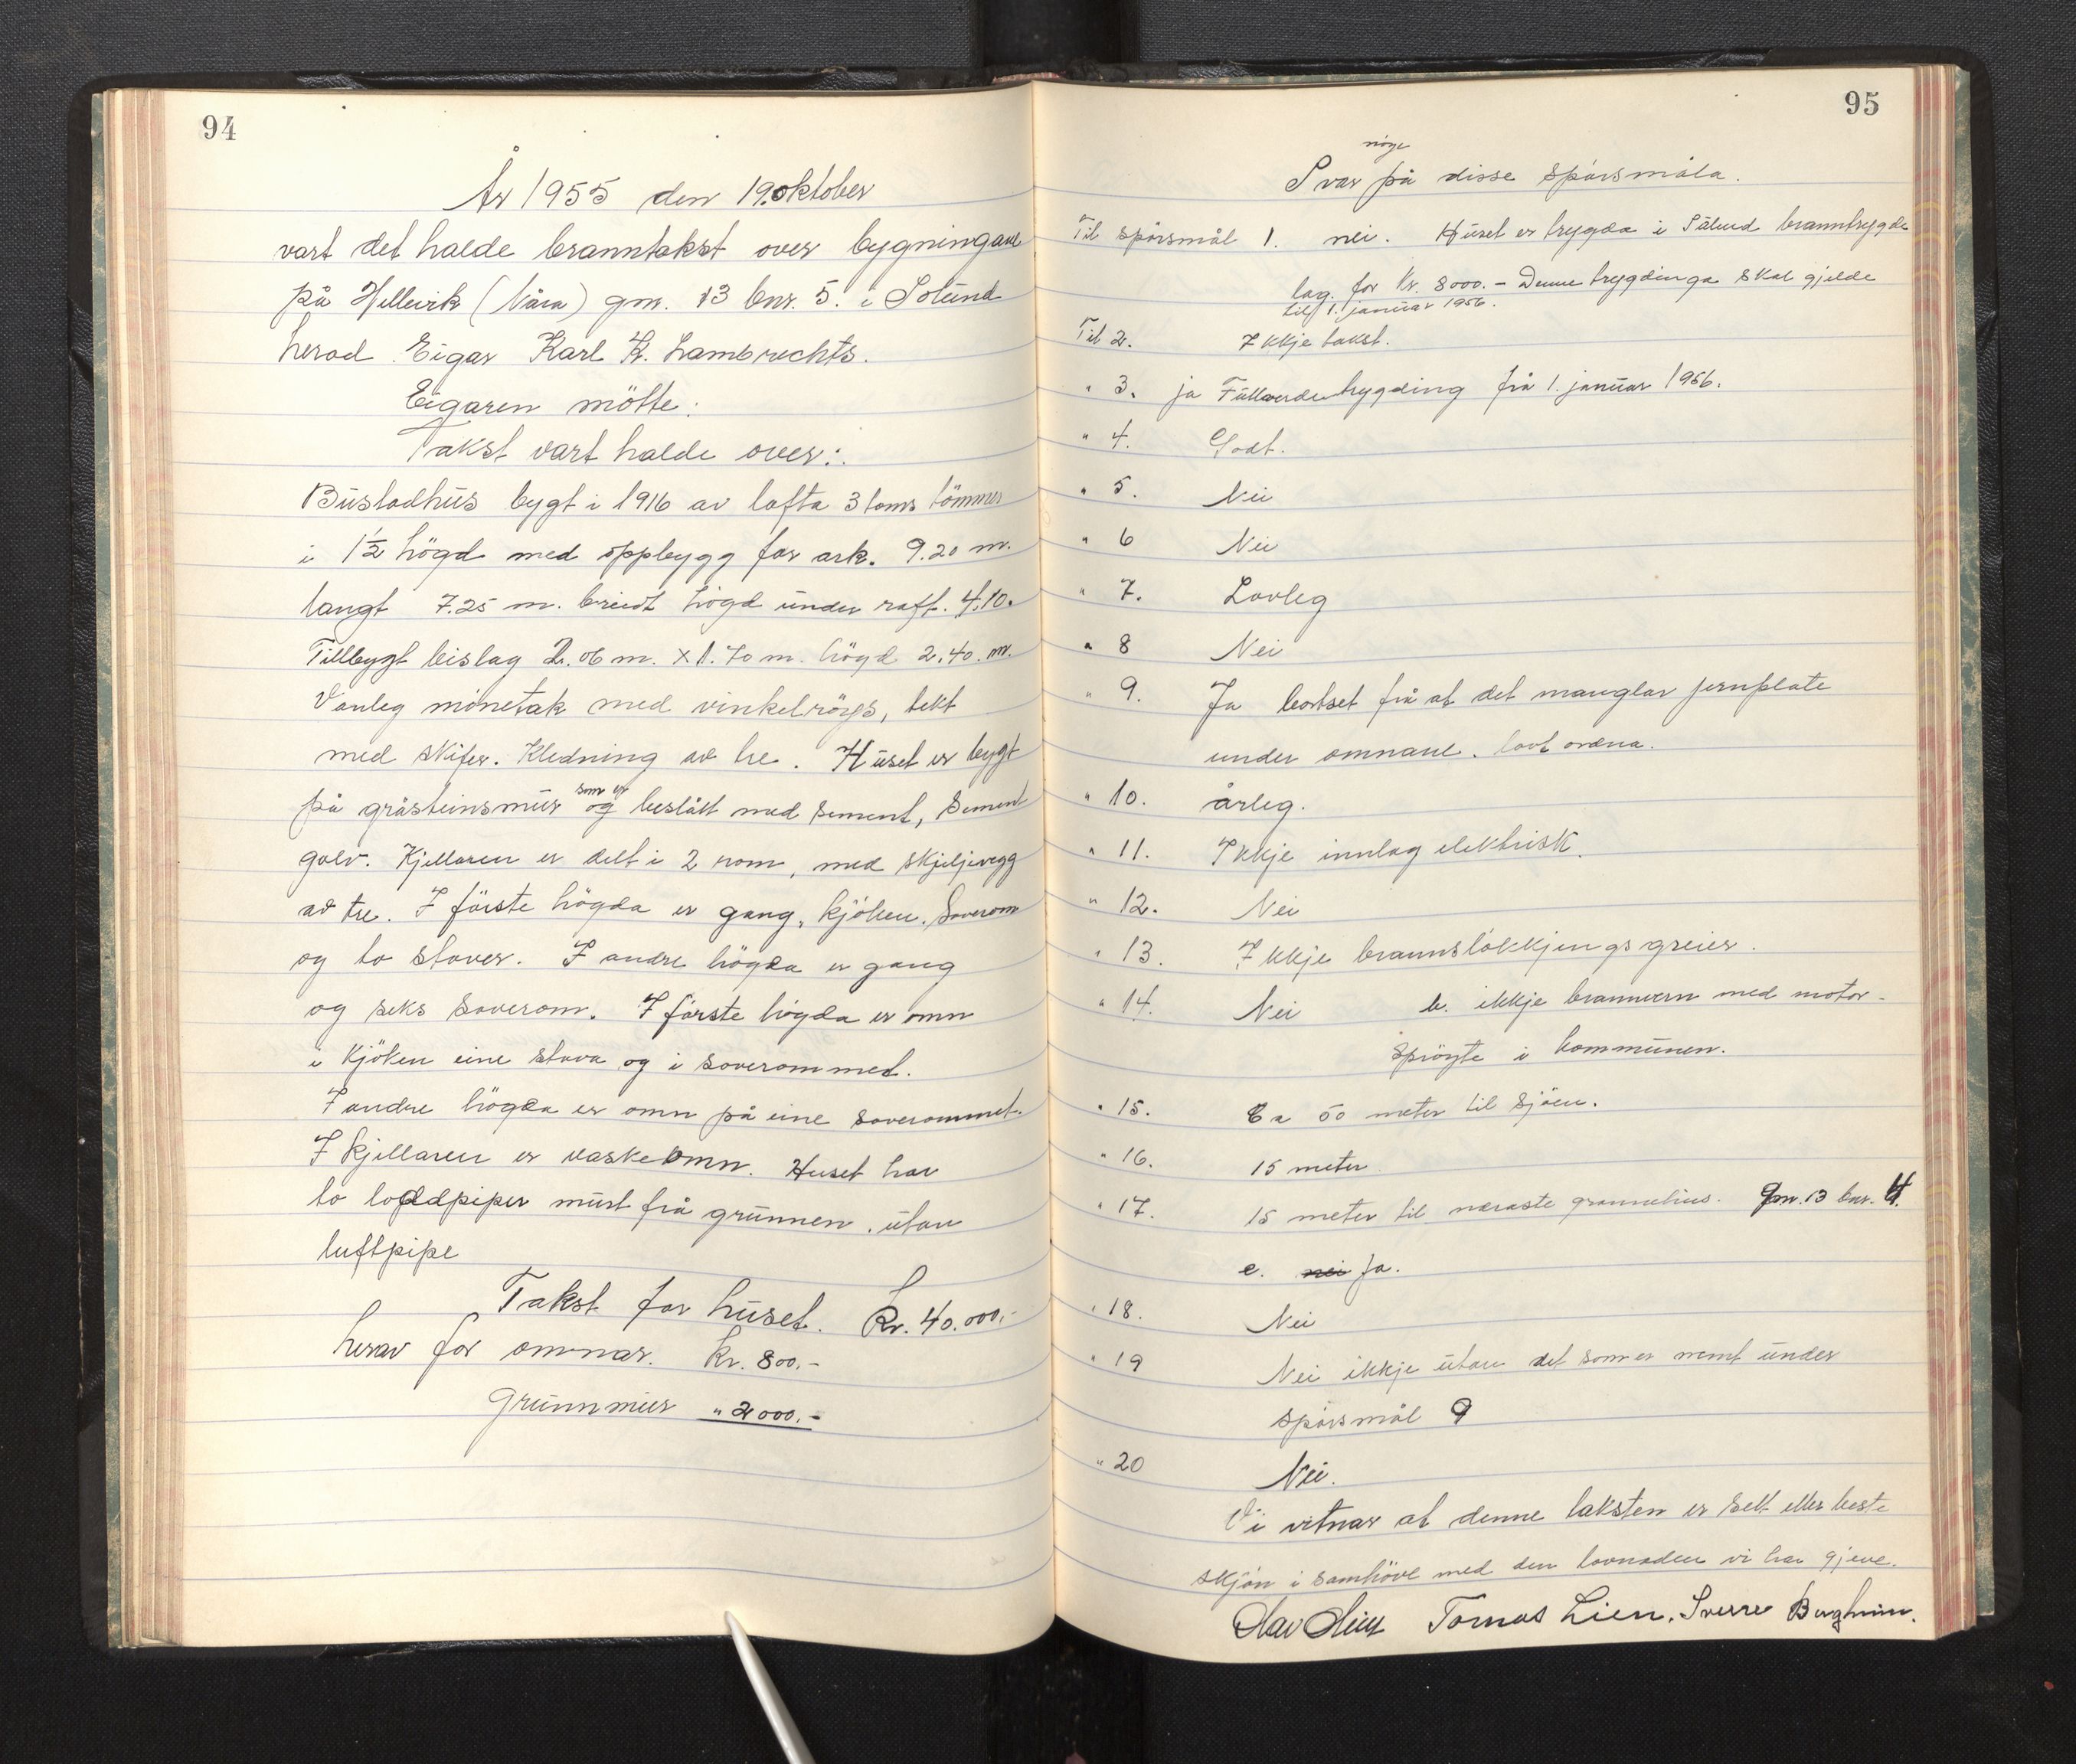 94
År 1955 den 19. oktober
vart det halde branntakst over bygningane
på Hellevik (Nåra) gnr. 13 bnr. 5. i Solund
herad Eigar Karl K. Lambrechts.
Eigaren mötte:
Takst vart halde over:.
Bustadhus bygt i 1916 av lafta 3 toms tömmer
i 1½ högd med oppbygg for ark. 9.20 m.
langt 7.25 m. breidt högd under raft. 4.10.
Tillbygt bislag 2.06 m. x 1.70 m. högd 2.40. m.
Vanleg mönetak med vinkelröys, tekt
med skifer. Kledning av tre. Huset er bygt
på gråsteinsmur som er
og beslått med sement, Sement
golv. Kjellaren er delt i 2 rom, med skiljevegg
av tre. I förste högda er gang, kjöken. Soverom
og to stover. I andre högda er gang
og seks Soverom. I förste högda er omn
i kjöken eine stova og i soverommet.
I andre högda er omn på eine soverommet.
I kjellaren er vaskeomn. Huset har
to loddpiper murt frå grunnen. utan
luftpipe
Takst for huset. Kr. 40.000.-
herav for omnar. kr. 800.-
Grunnmur " 2000.-
95
nöye
Svar på disse spörsmåla.
Til spörsmål 1. nei. Huset er trygda i Sålund branntrygde
lag. for kr. 8000.- Denne trygdinga skal gjelde
till 1. januar 1956.
Til 2. Ikkje takst.
" 3. ja Fullverdetrygding frå 1. januar 1956.
" 4. Godt.
" 5. Nei
" 6 Nei
" 7. Lovleg
" 8 Nei
" 9. Ja bortset frå at det manglar jernplate
under omnane. lovt ordna.
" 10. årleg.
" 11. Ikkje innlag elektrisk.
" 12. Nei
" 13. Ikkje brannslökkjings greier.
" 14. Nei b. ikkje brannvern med motor-
spröyte i kommunen.
" 15. Ca 50 meter til sjöen.
" 16. 15 meter
" 17. 15 meter til næraste grannehus. Gnr. 13 bnr. 4.
e. nei Ja.
" 18. Nei
" 19 Nei ikkje utan det som er nemt under
spörsmål 9
" 20 Nei.
Vi vitnar at denne taksten er sett etter beste
skjön i samhöve med den lovnaden vi har gjeve.
Olav Tomas Lien. Sverre